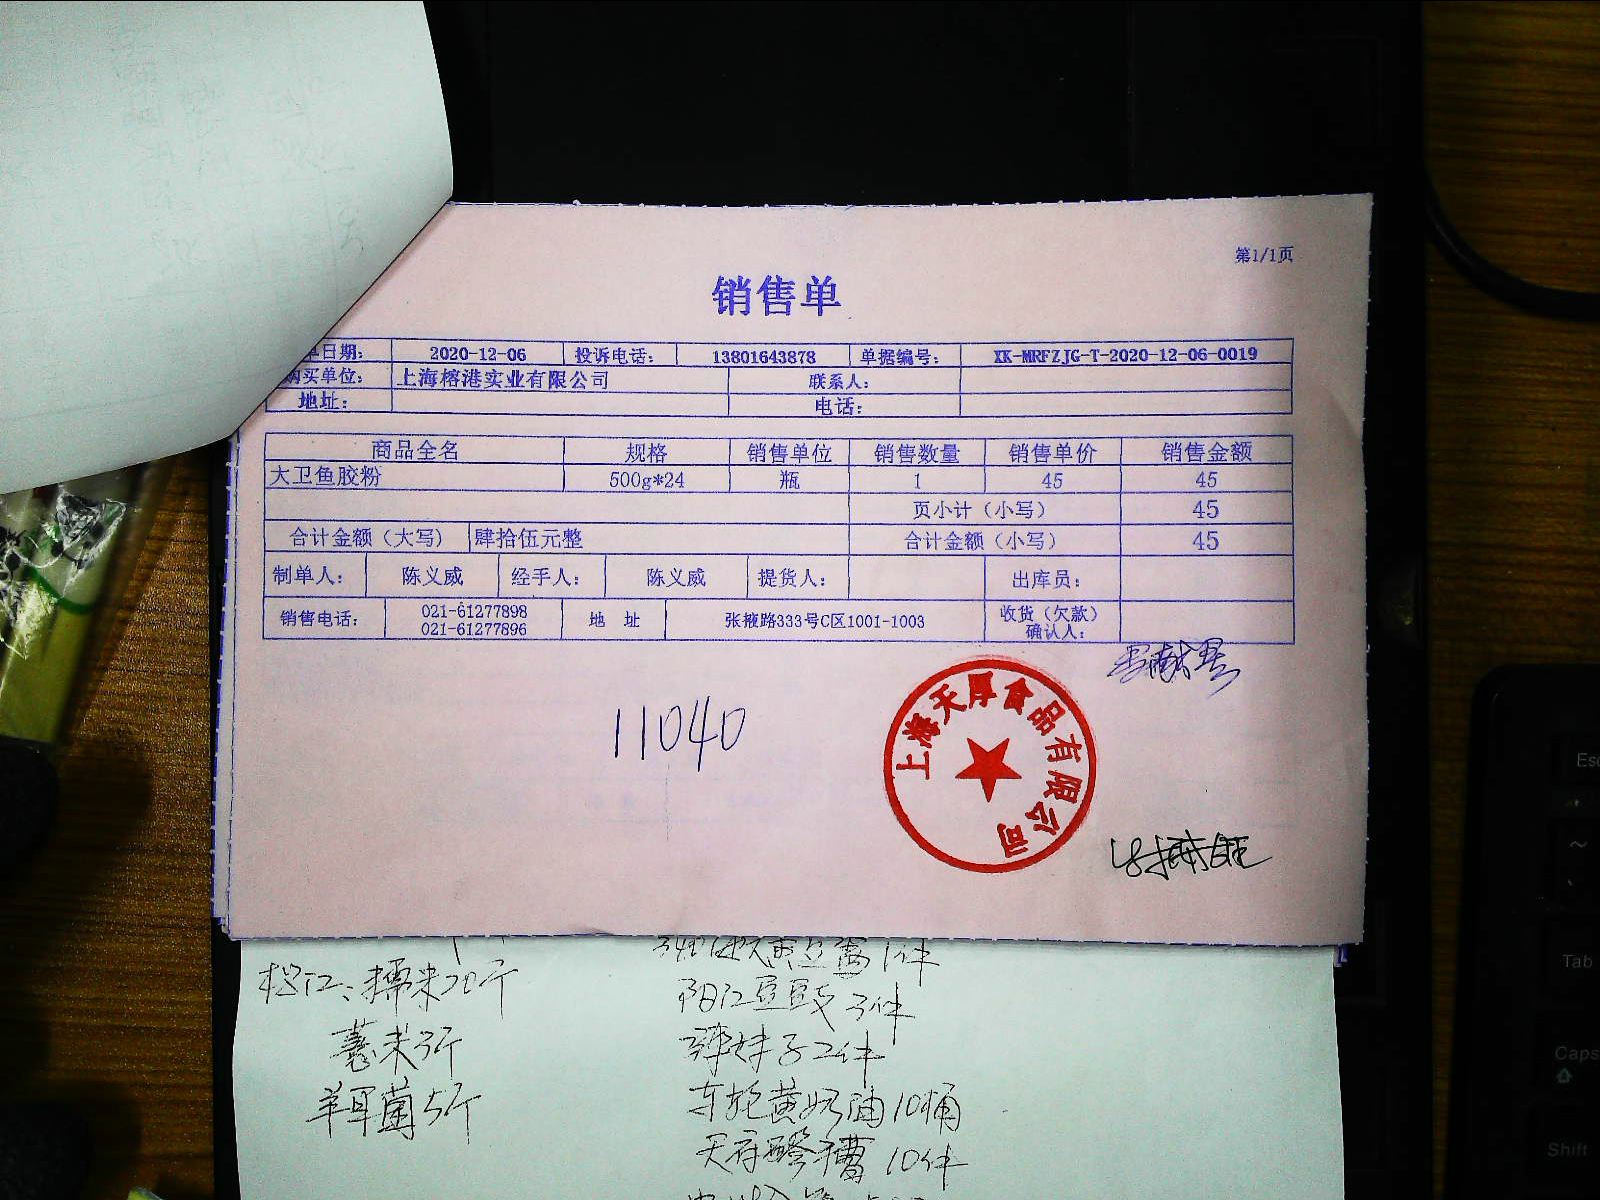 第1/1页
销售单
单日期： 2020-12-06 投诉电话： 13801643878 单据编号： XK-MRFZJG-T-2020-12-06-0019
购买单位： 上海榕港实业有限公司 联系人：
地址： 电话：
商品全名 规格 销售单位 销售数量 销售单价 销售金额
大卫鱼胶粉 500g*24 瓶 1 45 45
页小计（小写） 45
合计金额（大写） 肆拾伍元整 合计金额（小写） 45
制单人： 陈义威 经手人： 陈义威 提货人： 出库员：
销售电话： 021-61277898 021-61277896 地 址 张掖路333号C区1001-1003 收货（欠款）确认人：
11040
上海天厚食品有限公司
松江：糯米20斤
薏米3斤
羊耳菌5斤
黄豆酱1件
阳江豆豉3件
辣妹子2件
车轮黄奶油10桶
天府醪糟10件
Esc
~
Tab
Caps
Shift